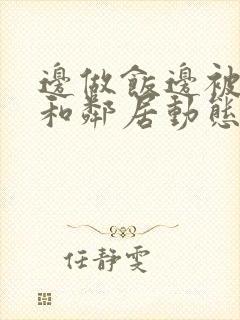 邊做飯邊被
和鄰居動態
任靜雯